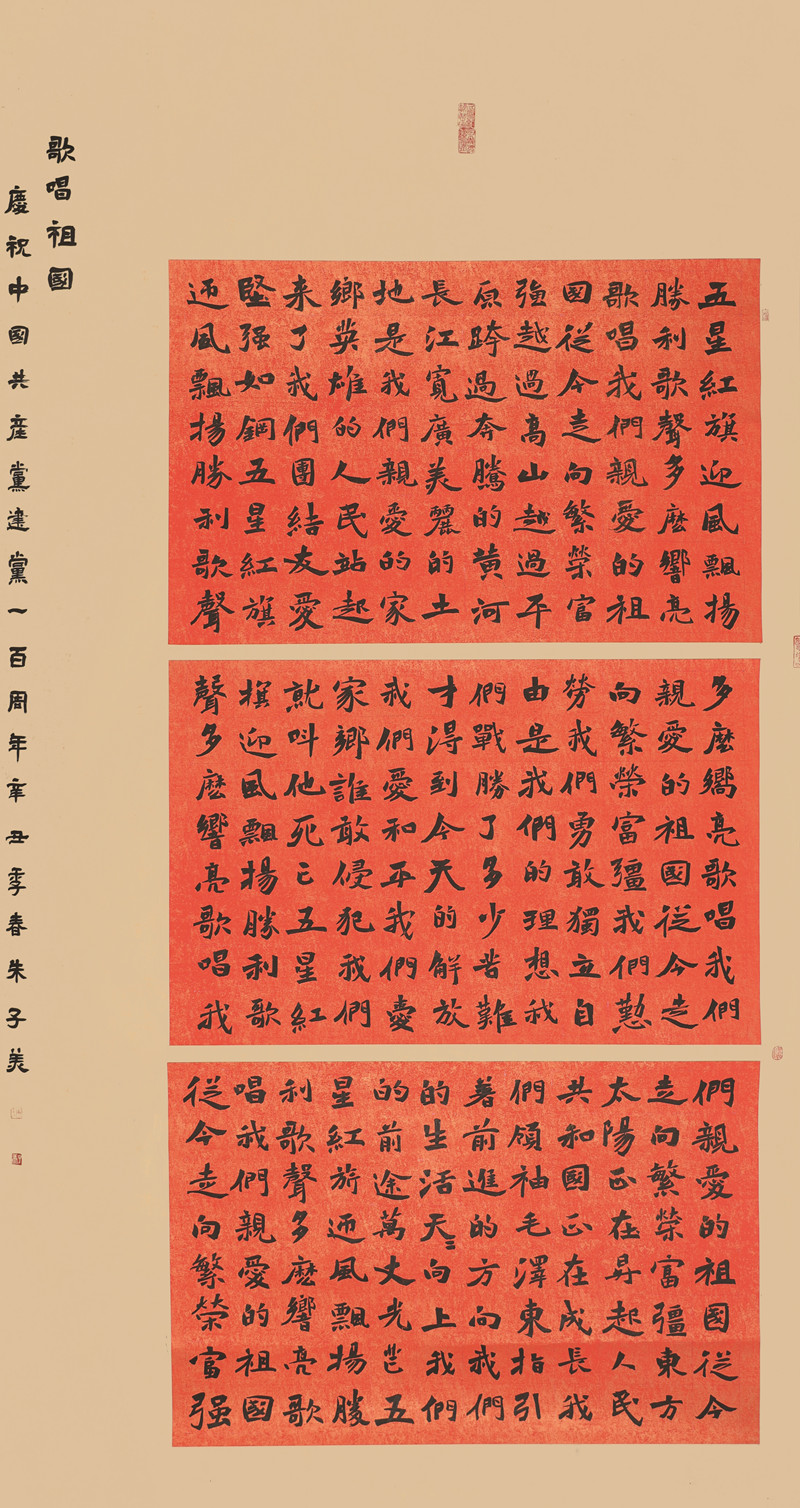 五星紅旗迎風飄揚
勝利歌聲多麽響亮
歌唱我們親愛的祖
國從今走向繁榮富
強越過高山越過平
原跨過奔騰的黃河
長江寬廣美麗的土
地是我們親愛的家
鄉英雄的人民站起
来了我們團結友愛
堅强如鋼五星紅旗
迎風飄揚勝利歌聲
多麽嚮亮歌唱我們
親愛的祖國從今走
向繁榮富彊我們勤
勞我們勇敢獨立自
由是我們的理想我
們戰勝了多少苦難
才得到今天的解放
我們愛和平我們愛
家鄉誰敢侵犯我們
就叫他死亡五星紅
旗迎風飄揚勝利歌
聲多麽響亮歌唱我
們親愛的祖國從今
走向繁榮富彊東方
太陽正在昇起人民
共和國正在成長我
們領袖毛澤東指引
著前進的方向我們
的生活天〻向上我們
的前途萬丈光芒五
星紅旗迎風飄揚勝
利歌聲多麽響亮歌
唱我們親愛的祖國
從今走向繁榮富强
歌唱祖國
慶祝中國共產黨建黨一百周年辛丑季春朱子美